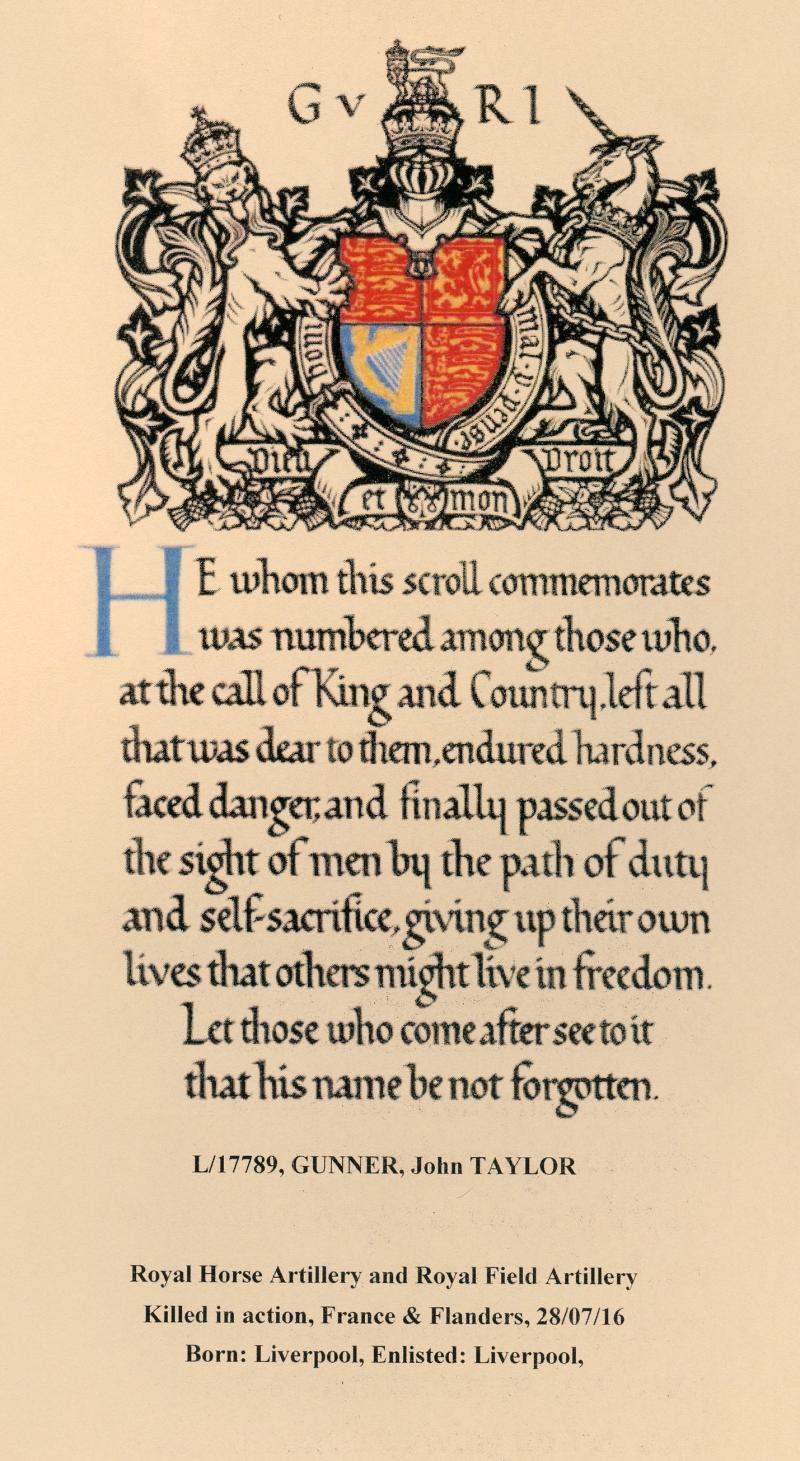 G V R I
hom
mal·y·pense
Dieu
et mon
Droit
HE whom this scroll commemorates
was numbered among those who,
at the call of King and Country, left all
that was dear to them, endured hardness,
faced danger, and finally passed out of
the sight of men by the path of duty
and self-sacrifice, giving up their own
lives that others might live in freedom.
Let those who come after see to it
that his name be not forgotten.
L/17789, GUNNER, John TAYLOR
Royal Horse Artillery and Royal Field Artillery
Killed in action, France & Flanders, 28/07/16
Born: Liverpool, Enlisted: Liverpool,